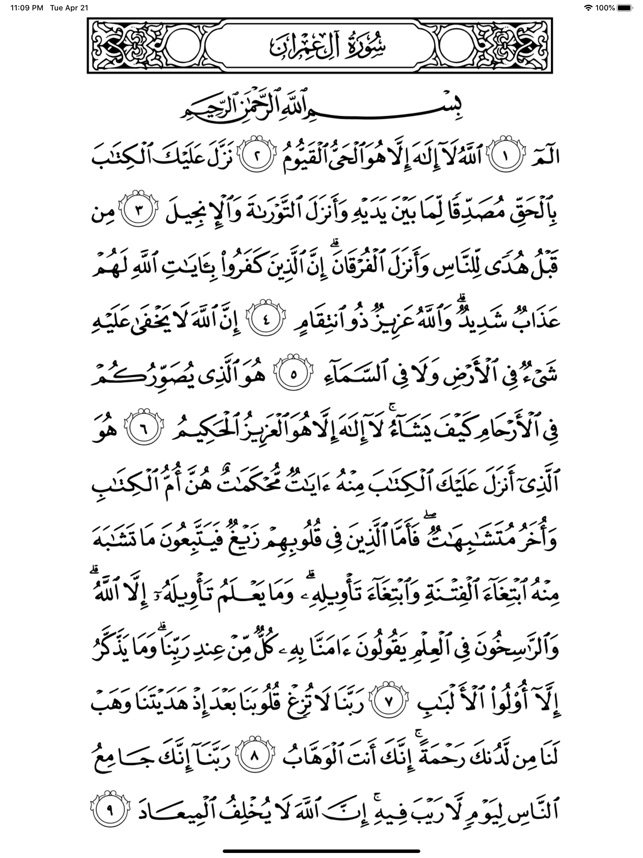 11:09 PM Tue Apr 21 100%
سُورَةُ آلِ عِمۡرَانَ
بِسۡمِ ٱللَّهِ ٱلرَّحۡمَٰنِ ٱلرَّحِيمِ
الٓمٓ ١ ٱللَّهُ لَآ إِلَٰهَ إِلَّا هُوَ ٱلۡحَيُّ ٱلۡقَيُّومُ ٢ نَزَّلَ عَلَيۡكَ ٱلۡكِتَٰبَ
بِٱلۡحَقِّ مُصَدِّقٗا لِّمَا بَيۡنَ يَدَيۡهِ وَأَنزَلَ ٱلتَّوۡرَىٰةَ وَٱلۡإِنجِيلَ ٣ مِن
قَبۡلُ هُدٗى لِّلنَّاسِ وَأَنزَلَ ٱلۡفُرۡقَانَۗ إِنَّ ٱلَّذِينَ كَفَرُواْ بِـَٔايَٰتِ ٱللَّهِ لَهُمۡ
عَذَابٞ شَدِيدٞۗ وَٱللَّهُ عَزِيزٞ ذُو ٱنتِقَامٍ ٤ إِنَّ ٱللَّهَ لَا يَخۡفَىٰ عَلَيۡهِ
شَيۡءٞ فِي ٱلۡأَرۡضِ وَلَا فِي ٱلسَّمَآءِ ٥ هُوَ ٱلَّذِي يُصَوِّرُكُمۡ
فِي ٱلۡأَرۡحَامِ كَيۡفَ يَشَآءُۚ لَآ إِلَٰهَ إِلَّا هُوَ ٱلۡعَزِيزُ ٱلۡحَكِيمُ ٦ هُوَ
ٱلَّذِيٓ أَنزَلَ عَلَيۡكَ ٱلۡكِتَٰبَ مِنۡهُ ءَايَٰتٞ مُّحۡكَمَٰتٌ هُنَّ أُمُّ ٱلۡكِتَٰبِ
وَأُخَرُ مُتَشَٰبِهَٰتٞۖ فَأَمَّا ٱلَّذِينَ فِي قُلُوبِهِمۡ زَيۡغٞ فَيَتَّبِعُونَ مَا تَشَٰبَهَ
مِنۡهُ ٱبۡتِغَآءَ ٱلۡفِتۡنَةِ وَٱبۡتِغَآءَ تَأۡوِيلِهِۦۗ وَمَا يَعۡلَمُ تَأۡوِيلَهُۥٓ إِلَّا ٱللَّهُۗ
وَٱلرَّٰسِخُونَ فِي ٱلۡعِلۡمِ يَقُولُونَ ءَامَنَّا بِهِۦ كُلّٞ مِّنۡ عِندِ رَبِّنَاۗ وَمَا يَذَّكَّرُ
إِلَّآ أُوْلُواْ ٱلۡأَلۡبَٰبِ ٧ رَبَّنَا لَا تُزِغۡ قُلُوبَنَا بَعۡدَ إِذۡ هَدَيۡتَنَا وَهَبۡ
لَنَا مِن لَّدُنكَ رَحۡمَةًۚ إِنَّكَ أَنتَ ٱلۡوَهَّابُ ٨ رَبَّنَآ إِنَّكَ جَامِعُ
ٱلنَّاسِ لِيَوۡمٖ لَّا رَيۡبَ فِيهِۚ إِنَّ ٱللَّهَ لَا يُخۡلِفُ ٱلۡمِيعَادَ ٩